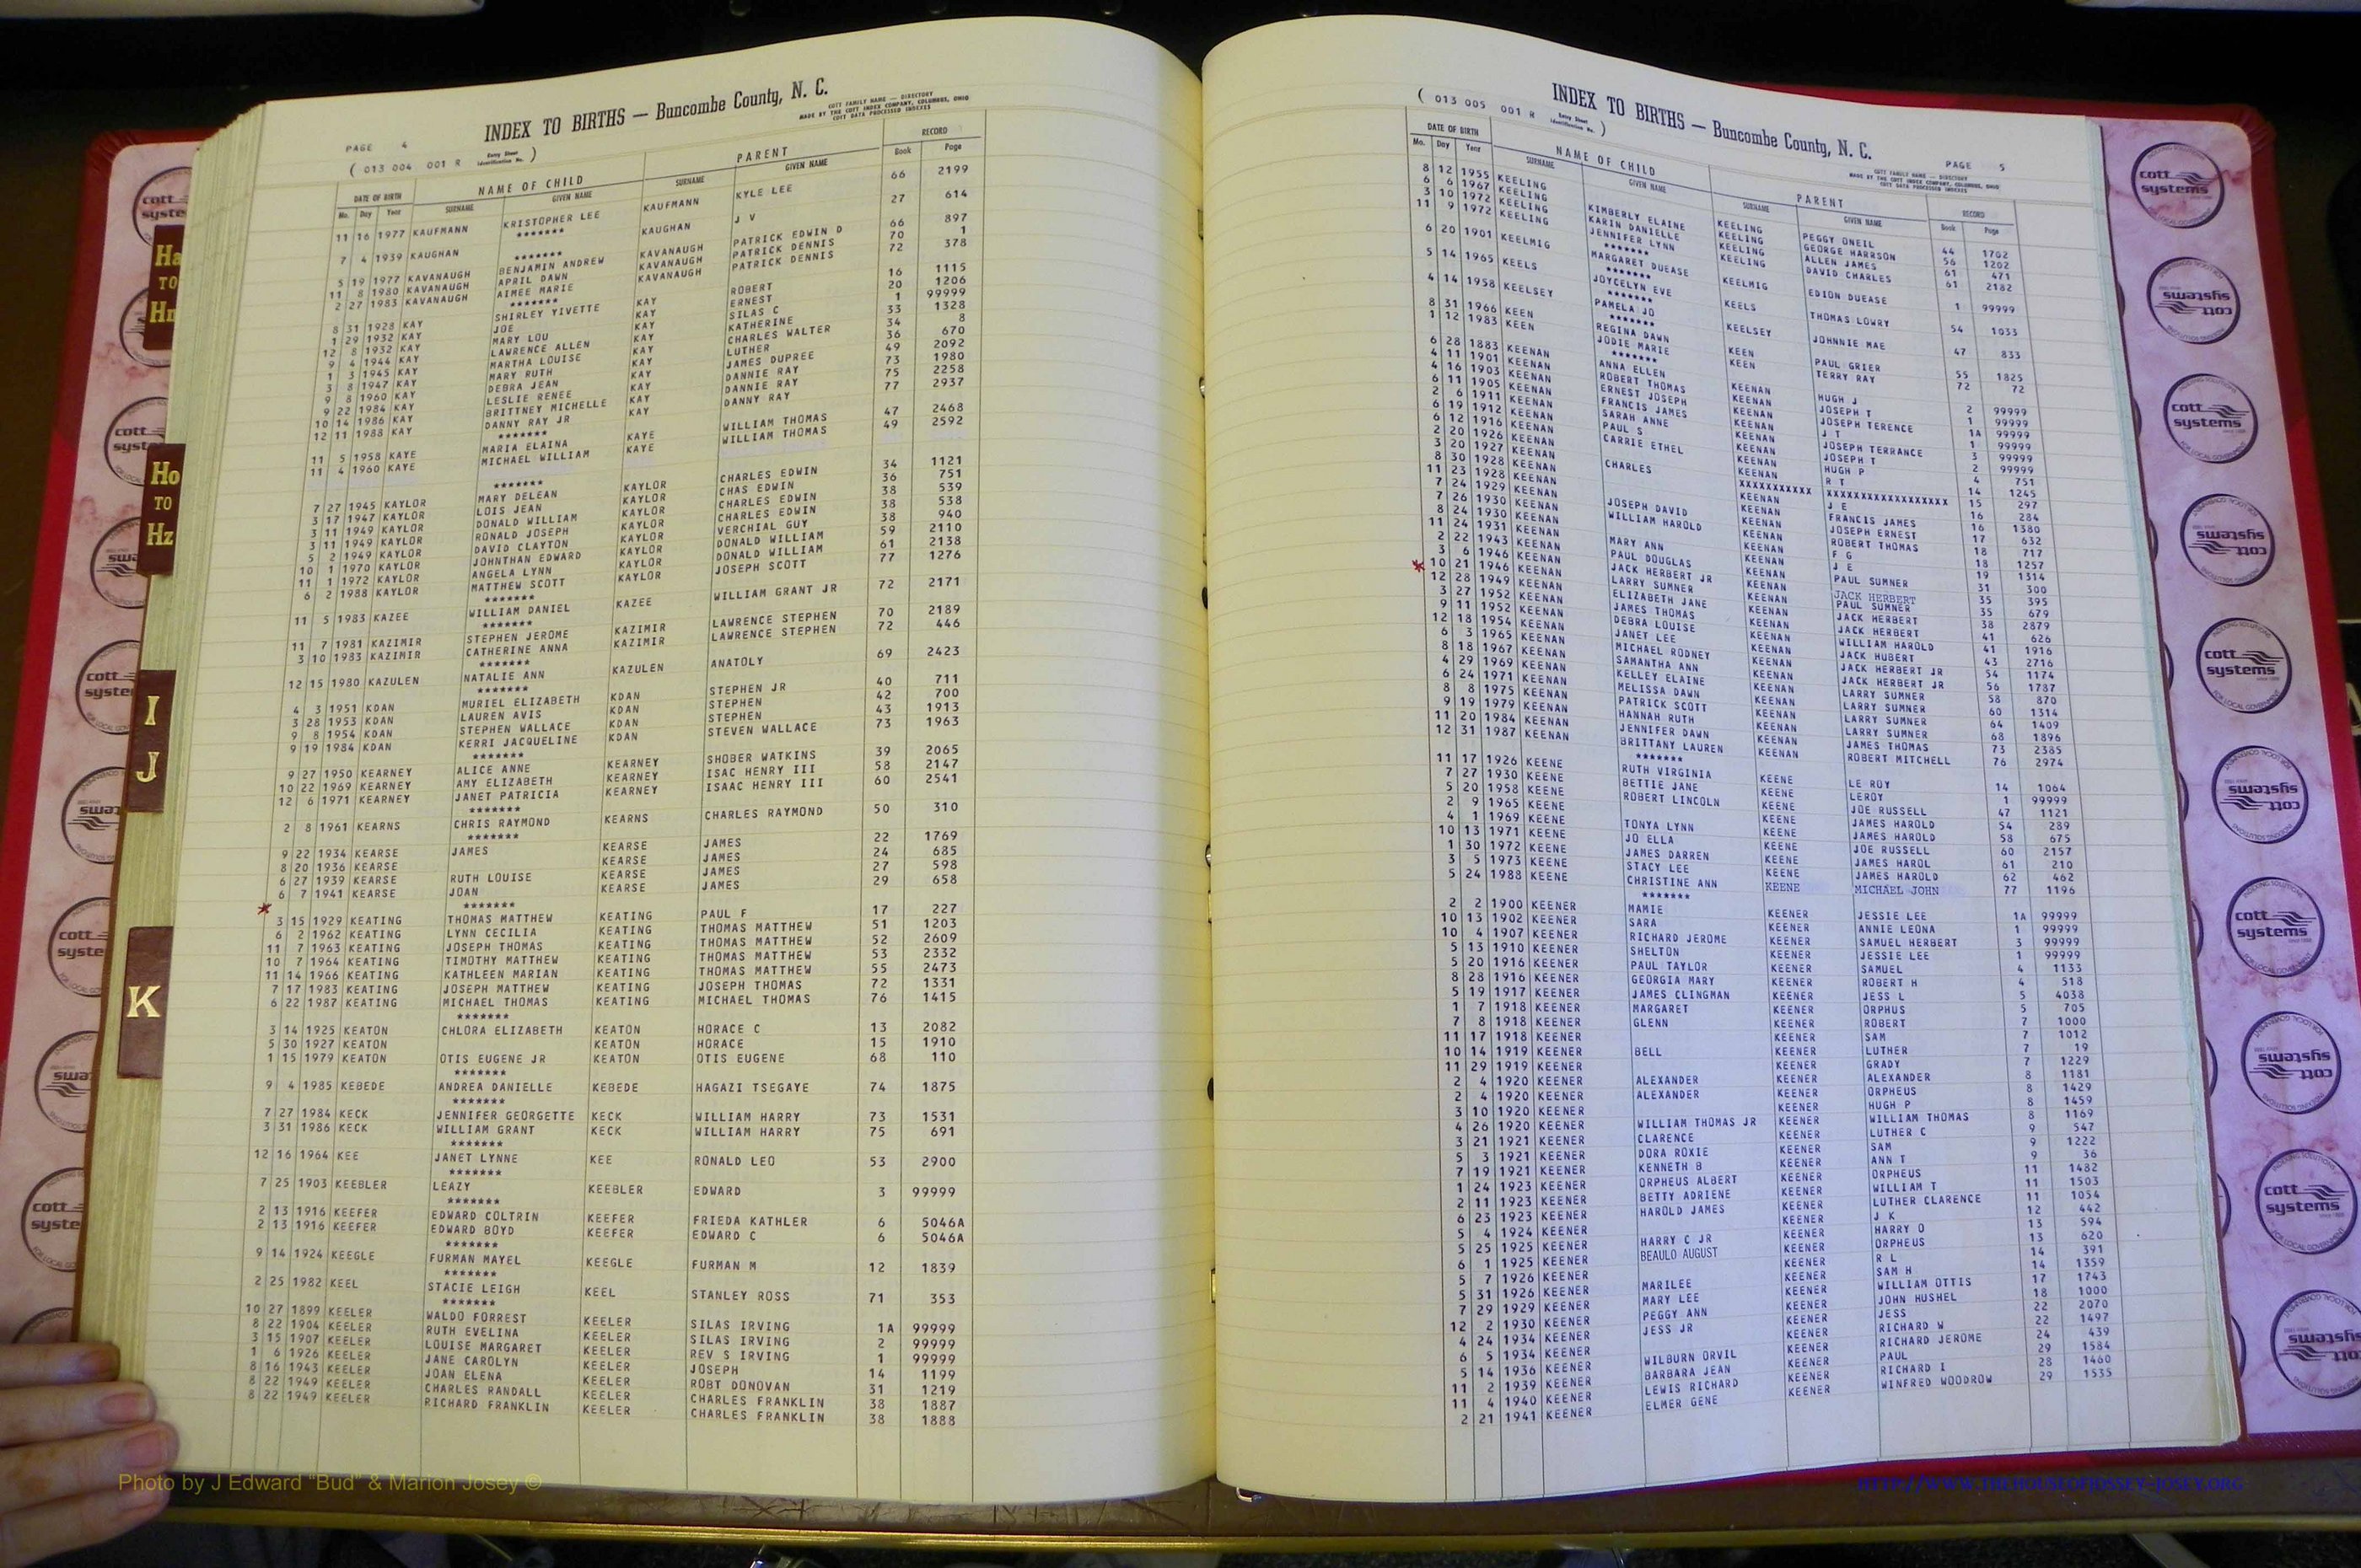 INDEX TO BIRTHS — Buncombe County, N. C.
COTT FAMILY NAME — DIRECTORY
MADE BY THE COTT INDEX COMPANY, COLUMBUS, OHIO
COTT DATA PROCESSED INDEXES
PAGE 4
( 013 004 001 R Entry Sheet Identification No. )
DATE OF BIRTH NAME OF CHILD PARENT RECORD
Mo. Day Year SURNAME GIVEN NAME SURNAME GIVEN NAME Book Page
11 16 1977 KAUFMANN KRISTOPHER LEE KAUFMANN KYLE LEE 66 2199
*******
7 4 1939 KAUGHAN KAUGHAN J V 27 614
*******
5 19 1977 KAVANAUGH BENJAMIN ANDREW KAVANAUGH PATRICK EDWIN D 66 897
11 8 1980 KAVANAUGH APRIL DAWN KAVANAUGH PATRICK DENNIS 70 1
2 27 1983 KAVANAUGH AIMEE MARIE KAVANAUGH PATRICK DENNIS 72 378
*******
8 31 1928 KAY SHIRLEY YIVETTE KAY ROBERT 16 1115
1 29 1932 KAY JOE KAY ERNEST 20 1206
12 8 1932 KAY MARY LOU KAY SILAS C 1 99999
9 4 1944 KAY LAWRENCE ALLEN KAY KATHERINE 33 1328
1 3 1945 KAY MARTHA LOUISE KAY CHARLES WALTER 34 8
3 8 1947 KAY MARY RUTH KAY LUTHER 36 670
9 8 1960 KAY DEBRA JEAN KAY JAMES DUPREE 49 2092
9 22 1984 KAY LESLIE RENEE KAY DANNIE RAY 73 1980
10 14 1986 KAY BRITTNEY MICHELLE KAY DANNIE RAY 75 2258
12 11 1988 KAY DANNY RAY JR KAY DANNY RAY 77 2937
*******
11 5 1958 KAYE MARIA ELAINA KAYE WILLIAM THOMAS 47 2468
11 4 1960 KAYE MICHAEL WILLIAM KAYE WILLIAM THOMAS 49 2592
*******
7 27 1945 KAYLOR MARY DELEAN KAYLOR CHARLES EDWIN 34 1121
3 17 1947 KAYLOR LOIS JEAN KAYLOR CHAS EDWIN 36 751
3 11 1949 KAYLOR DONALD WILLIAM KAYLOR CHARLES EDWIN 38 539
3 11 1949 KAYLOR RONALD JOSEPH KAYLOR CHARLES EDWIN 38 538
5 2 1949 KAYLOR DAVID CLAYTON KAYLOR VERCHIAL GUY 38 940
10 1 1970 KAYLOR JOHNTHAN EDWARD KAYLOR DONALD WILLIAM 59 2110
11 1 1972 KAYLOR ANGELA LYNN KAYLOR DONALD WILLIAM 61 2138
6 2 1988 KAYLOR MATTHEW SCOTT KAYLOR JOSEPH SCOTT 77 1276
*******
11 5 1983 KAZEE WILLIAM DANIEL KAZEE WILLIAM GRANT JR 72 2171
*******
11 7 1981 KAZIMIR STEPHEN JEROME KAZIMIR LAWRENCE STEPHEN 70 2189
3 10 1983 KAZIMIR CATHERINE ANNA KAZIMIR LAWRENCE STEPHEN 72 446
*******
12 15 1980 KAZULEN NATALIE ANN KAZULEN ANATOLY 69 2423
*******
4 3 1951 KDAN MURIEL ELIZABETH KDAN STEPHEN JR 40 711
3 28 1953 KDAN LAUREN AVIS KDAN STEPHEN 42 700
9 8 1954 KDAN STEPHEN WALLACE KDAN STEPHEN 43 1913
9 19 1984 KDAN KERRI JACQUELINE KDAN STEVEN WALLACE 73 1963
*******
9 27 1950 KEARNEY ALICE ANNE KEARNEY SHOBER WATKINS 39 2065
10 22 1969 KEARNEY AMY ELIZABETH KEARNEY ISAC HENRY III 58 2147
12 6 1971 KEARNEY JANET PATRICIA KEARNEY ISAAC HENRY III 60 2541
*******
2 8 1961 KEARNS CHRIS RAYMOND KEARNS CHARLES RAYMOND 50 310
*******
9 22 1934 KEARSE JAMES KEARSE JAMES 22 1769
8 20 1936 KEARSE KEARSE JAMES 24 685
6 27 1939 KEARSE RUTH LOUISE KEARSE JAMES 27 598
6 7 1941 KEARSE JOAN KEARSE JAMES 29 658
*******
3 15 1929 KEATING THOMAS MATTHEW KEATING PAUL F 17 227
6 2 1962 KEATING LYNN CECILIA KEATING THOMAS MATTHEW 51 1203
11 7 1963 KEATING JOSEPH THOMAS KEATING THOMAS MATTHEW 52 2609
10 7 1964 KEATING TIMOTHY MATTHEW KEATING THOMAS MATTHEW 53 2332
11 14 1966 KEATING KATHLEEN MARIAN KEATING THOMAS MATTHEW 55 2473
7 17 1983 KEATING JOSEPH MATTHEW KEATING JOSEPH THOMAS 72 1331
6 22 1987 KEATING MICHAEL THOMAS KEATING MICHAEL THOMAS 76 1415
*******
3 14 1925 KEATON CHLORA ELIZABETH KEATON HORACE C 13 2082
5 30 1927 KEATON KEATON HORACE 15 1910
1 15 1979 KEATON OTIS EUGENE JR KEATON OTIS EUGENE 68 110
*******
9 4 1985 KEBEDE ANDREA DANIELLE KEBEDE HAGAZI TSEGAYE 74 1875
*******
7 27 1984 KECK JENNIFER GEORGETTE KECK WILLIAM HARRY 73 1531
3 31 1986 KECK WILLIAM GRANT KECK WILLIAM HARRY 75 691
*******
12 16 1964 KEE JANET LYNNE KEE RONALD LEO 53 2900
*******
7 25 1903 KEEBLER LEAZY KEEBLER EDWARD 3 99999
*******
2 13 1916 KEEFER EDWARD COLTRIN KEEFER FRIEDA KATHLER 6 5046A
2 13 1916 KEEFER EDWARD BOYD KEEFER EDWARD C 6 5046A
*******
9 14 1924 KEEGLE FURMAN MAYEL KEEGLE FURMAN M 12 1839
*******
2 25 1982 KEEL STACIE LEIGH KEEL STANLEY ROSS 71 353
*******
10 27 1899 KEELER WALDO FORREST KEELER SILAS IRVING 1A 99999
8 22 1904 KEELER RUTH EVELINA KEELER SILAS IRVING 2 99999
3 15 1907 KEELER LOUISE MARGARET KEELER REV S IRVING 1 99999
1 6 1926 KEELER JANE CAROLYN KEELER JOSEPH 14 1199
8 16 1943 KEELER JOAN ELENA KEELER ROBT DONOVAN 31 1219
8 22 1949 KEELER CHARLES RANDALL KEELER CHARLES FRANKLIN 38 1887
8 22 1949 KEELER RICHARD FRANKLIN KEELER CHARLES FRANKLIN 38 1888
INDEX TO BIRTHS — Buncombe County, N. C.
COTT FAMILY NAME — DIRECTORY
MADE BY THE COTT INDEX COMPANY, COLUMBUS, OHIO
COTT DATA PROCESSED INDEXES
PAGE 5
( 013 005 001 R Entry Sheet Identification No. )
DATE OF BIRTH NAME OF CHILD PARENT RECORD
Mo. Day Year SURNAME GIVEN NAME SURNAME GIVEN NAME Book Page
8 12 1955 KEELING KEELING PEGGY ONEIL 44 1702
6 6 1967 KEELING KIMBERLY ELAINE KEELING GEORGE HARRSON 56 1202
3 10 1972 KEELING KARIN DANIELLE KEELING ALLEN JAMES 61 471
11 9 1972 KEELING JENNIFER LYNN KEELING DAVID CHARLES 61 2182
*******
6 20 1901 KEELMIG MARGARET DUEASE KEELMIG EDION DUEASE 1 99999
*******
5 14 1965 KEELS JOYCELYN EVE KEELS THOMAS LOWRY 54 1033
*******
4 14 1958 KEELSEY PAMELA JO KEELSEY JOHNNIE MAE 47 833
*******
8 31 1966 KEEN REGINA DAWN KEEN PAUL GRIER 55 1825
1 12 1983 KEEN JODIE MARIE KEEN TERRY RAY 72 72
*******
6 28 1883 KEENAN ANNA ELLEN KEENAN HUGH J 2 99999
4 11 1901 KEENAN ROBERT THOMAS KEENAN JOSEPH T 1 99999
4 16 1903 KEENAN ERNEST JOSEPH KEENAN JOSEPH TERENCE 1A 99999
6 11 1905 KEENAN FRANCIS JAMES KEENAN J T 1 99999
2 6 1911 KEENAN SARAH ANNE KEENAN JOSEPH TERRANCE 3 99999
6 19 1912 KEENAN PAUL S KEENAN JOSEPH T 2 99999
6 12 1916 KEENAN CARRIE ETHEL KEENAN HUGH P 4 751
2 20 1926 KEENAN KEENAN R T 14 1245
3 20 1927 KEENAN CHARLES XXXXXXXXXXX XXXXXXXXXXXXXXXXXX 15 297
8 30 1928 KEENAN KEENAN J E 16 284
11 23 1928 KEENAN KEENAN FRANCIS JAMES 16 1380
7 24 1929 KEENAN JOSEPH DAVID KEENAN JOSEPH ERNEST 17 632
7 26 1930 KEENAN WILLIAM HAROLD KEENAN ROBERT THOMAS 18 717
8 24 1930 KEENAN KEENAN F G 18 1257
11 24 1931 KEENAN MARY ANN KEENAN J E 19 1314
2 22 1943 KEENAN PAUL DOUGLAS KEENAN PAUL SUMNER 31 300
3 6 1946 KEENAN JACK HERBERT JR KEENAN JACK HERBERT 35 395
10 21 1946 KEENAN LARRY SUMNER KEENAN PAUL SUMNER 35 679
12 28 1949 KEENAN ELIZABETH JANE KEENAN JACK HERBERT 38 2879
3 27 1952 KEENAN JAMES THOMAS KEENAN JACK HERBERT 41 626
9 11 1952 KEENAN DEBRA LOUISE KEENAN WILLIAM HAROLD 41 1916
12 18 1954 KEENAN JANET LEE KEENAN JACK HUBERT 43 2716
6 3 1965 KEENAN MICHAEL RODNEY KEENAN JACK HERBERT JR 54 1174
8 18 1967 KEENAN SAMANTHA ANN KEENAN JACK HERBERT JR 56 1787
4 29 1969 KEENAN KELLEY ELAINE KEENAN LARRY SUMNER 58 870
6 24 1971 KEENAN MELISSA DAWN KEENAN LARRY SUMNER 60 1314
8 8 1975 KEENAN PATRICK SCOTT KEENAN LARRY SUMNER 64 1409
9 19 1979 KEENAN HANNAH RUTH KEENAN LARRY SUMNER 68 1896
11 20 1984 KEENAN JENNIFER DAWN KEENAN JAMES THOMAS 73 2385
12 31 1987 KEENAN BRITTANY LAUREN KEENAN ROBERT MITCHELL 76 2974
*******
11 17 1926 KEENE RUTH VIRGINIA KEENE LE ROY 14 1064
7 27 1930 KEENE BETTIE JANE KEENE LEROY 1 99999
5 20 1958 KEENE ROBERT LINCOLN KEENE JOE RUSSELL 47 1121
2 9 1965 KEENE KEENE JAMES HAROLD 54 289
4 1 1969 KEENE TONYA LYNN KEENE JAMES HAROLD 58 675
10 13 1971 KEENE JO ELLA KEENE JOE RUSSELL 60 2157
1 30 1972 KEENE JAMES DARREN KEENE JAMES HAROL 61 210
3 5 1973 KEENE STACY LEE KEENE JAMES HAROLD 62 462
5 24 1988 KEENE CHRISTINE ANN KEENE MICHAEL JOHN 77 1196
*******
2 2 1900 KEENER MAMIE KEENER JESSIE LEE 1A 99999
10 13 1902 KEENER SARA KEENER ANNIE LEONA 1 99999
10 4 1907 KEENER RICHARD JEROME KEENER SAMUEL HERBERT 3 99999
5 13 1910 KEENER SHELTON KEENER JESSIE LEE 1 99999
5 20 1916 KEENER PAUL TAYLOR KEENER SAMUEL 4 1133
8 28 1916 KEENER GEORGIA MARY KEENER ROBERT H 4 518
5 19 1917 KEENER JAMES CLINGMAN KEENER JESS L 5 4038
1 7 1918 KEENER MARGARET KEENER ORPHUS 5 705
7 8 1918 KEENER GLENN KEENER ROBERT 7 1000
11 17 1918 KEENER KEENER SAM 7 1012
10 14 1919 KEENER BELL KEENER LUTHER 7 19
11 29 1919 KEENER KEENER GRADY 7 1229
2 4 1920 KEENER ALEXANDER KEENER ALEXANDER 8 1181
2 4 1920 KEENER ALEXANDER KEENER ORPHEUS 8 1429
3 10 1920 KEENER KEENER HUGH P 8 1459
4 26 1920 KEENER WILLIAM THOMAS JR KEENER WILLIAM THOMAS 8 1169
3 21 1921 KEENER CLARENCE KEENER LUTHER C 9 547
5 3 1921 KEENER DORA ROXIE KEENER SAM 9 1222
7 19 1921 KEENER KENNETH B KEENER ANN T 9 36
1 24 1923 KEENER ORPHEUS ALBERT KEENER ORPHEUS 11 1482
2 11 1923 KEENER BETTY ADRIENE KEENER WILLIAM T 11 1503
6 23 1923 KEENER HAROLD JAMES KEENER LUTHER CLARENCE 11 1054
5 4 1924 KEENER KEENER J K 12 442
5 25 1925 KEENER HARRY C JR KEENER HARRY O 13 594
6 1 1925 KEENER BEAULO AUGUST KEENER ORPHEUS 13 620
5 7 1926 KEENER KEENER R L 14 391
5 31 1926 KEENER MARILEE KEENER SAM H 14 1359
7 29 1929 KEENER MARY LEE KEENER WILLIAM OTTIS 17 1743
12 2 1930 KEENER PEGGY ANN KEENER JOHN HUSHEL 18 1000
4 24 1934 KEENER JESS JR KEENER JESS 22 2070
6 5 1934 KEENER KEENER RICHARD W 22 1497
5 14 1936 KEENER WILBURN ORVIL KEENER RICHARD JEROME 24 439
11 2 1939 KEENER BARBARA JEAN KEENER PAUL 29 1584
11 4 1940 KEENER LEWIS RICHARD KEENER RICHARD I 28 1460
2 21 1941 KEENER ELMER GENE KEENER WINFRED WOODROW 29 1535
Ho
TO
Hz
I
J
K
cott systems
Photo by J Edward "Bud" & Marion Josey ©
HTTP://WWW.THEHOUSEOFJOSSEY-JOSEY.ORG